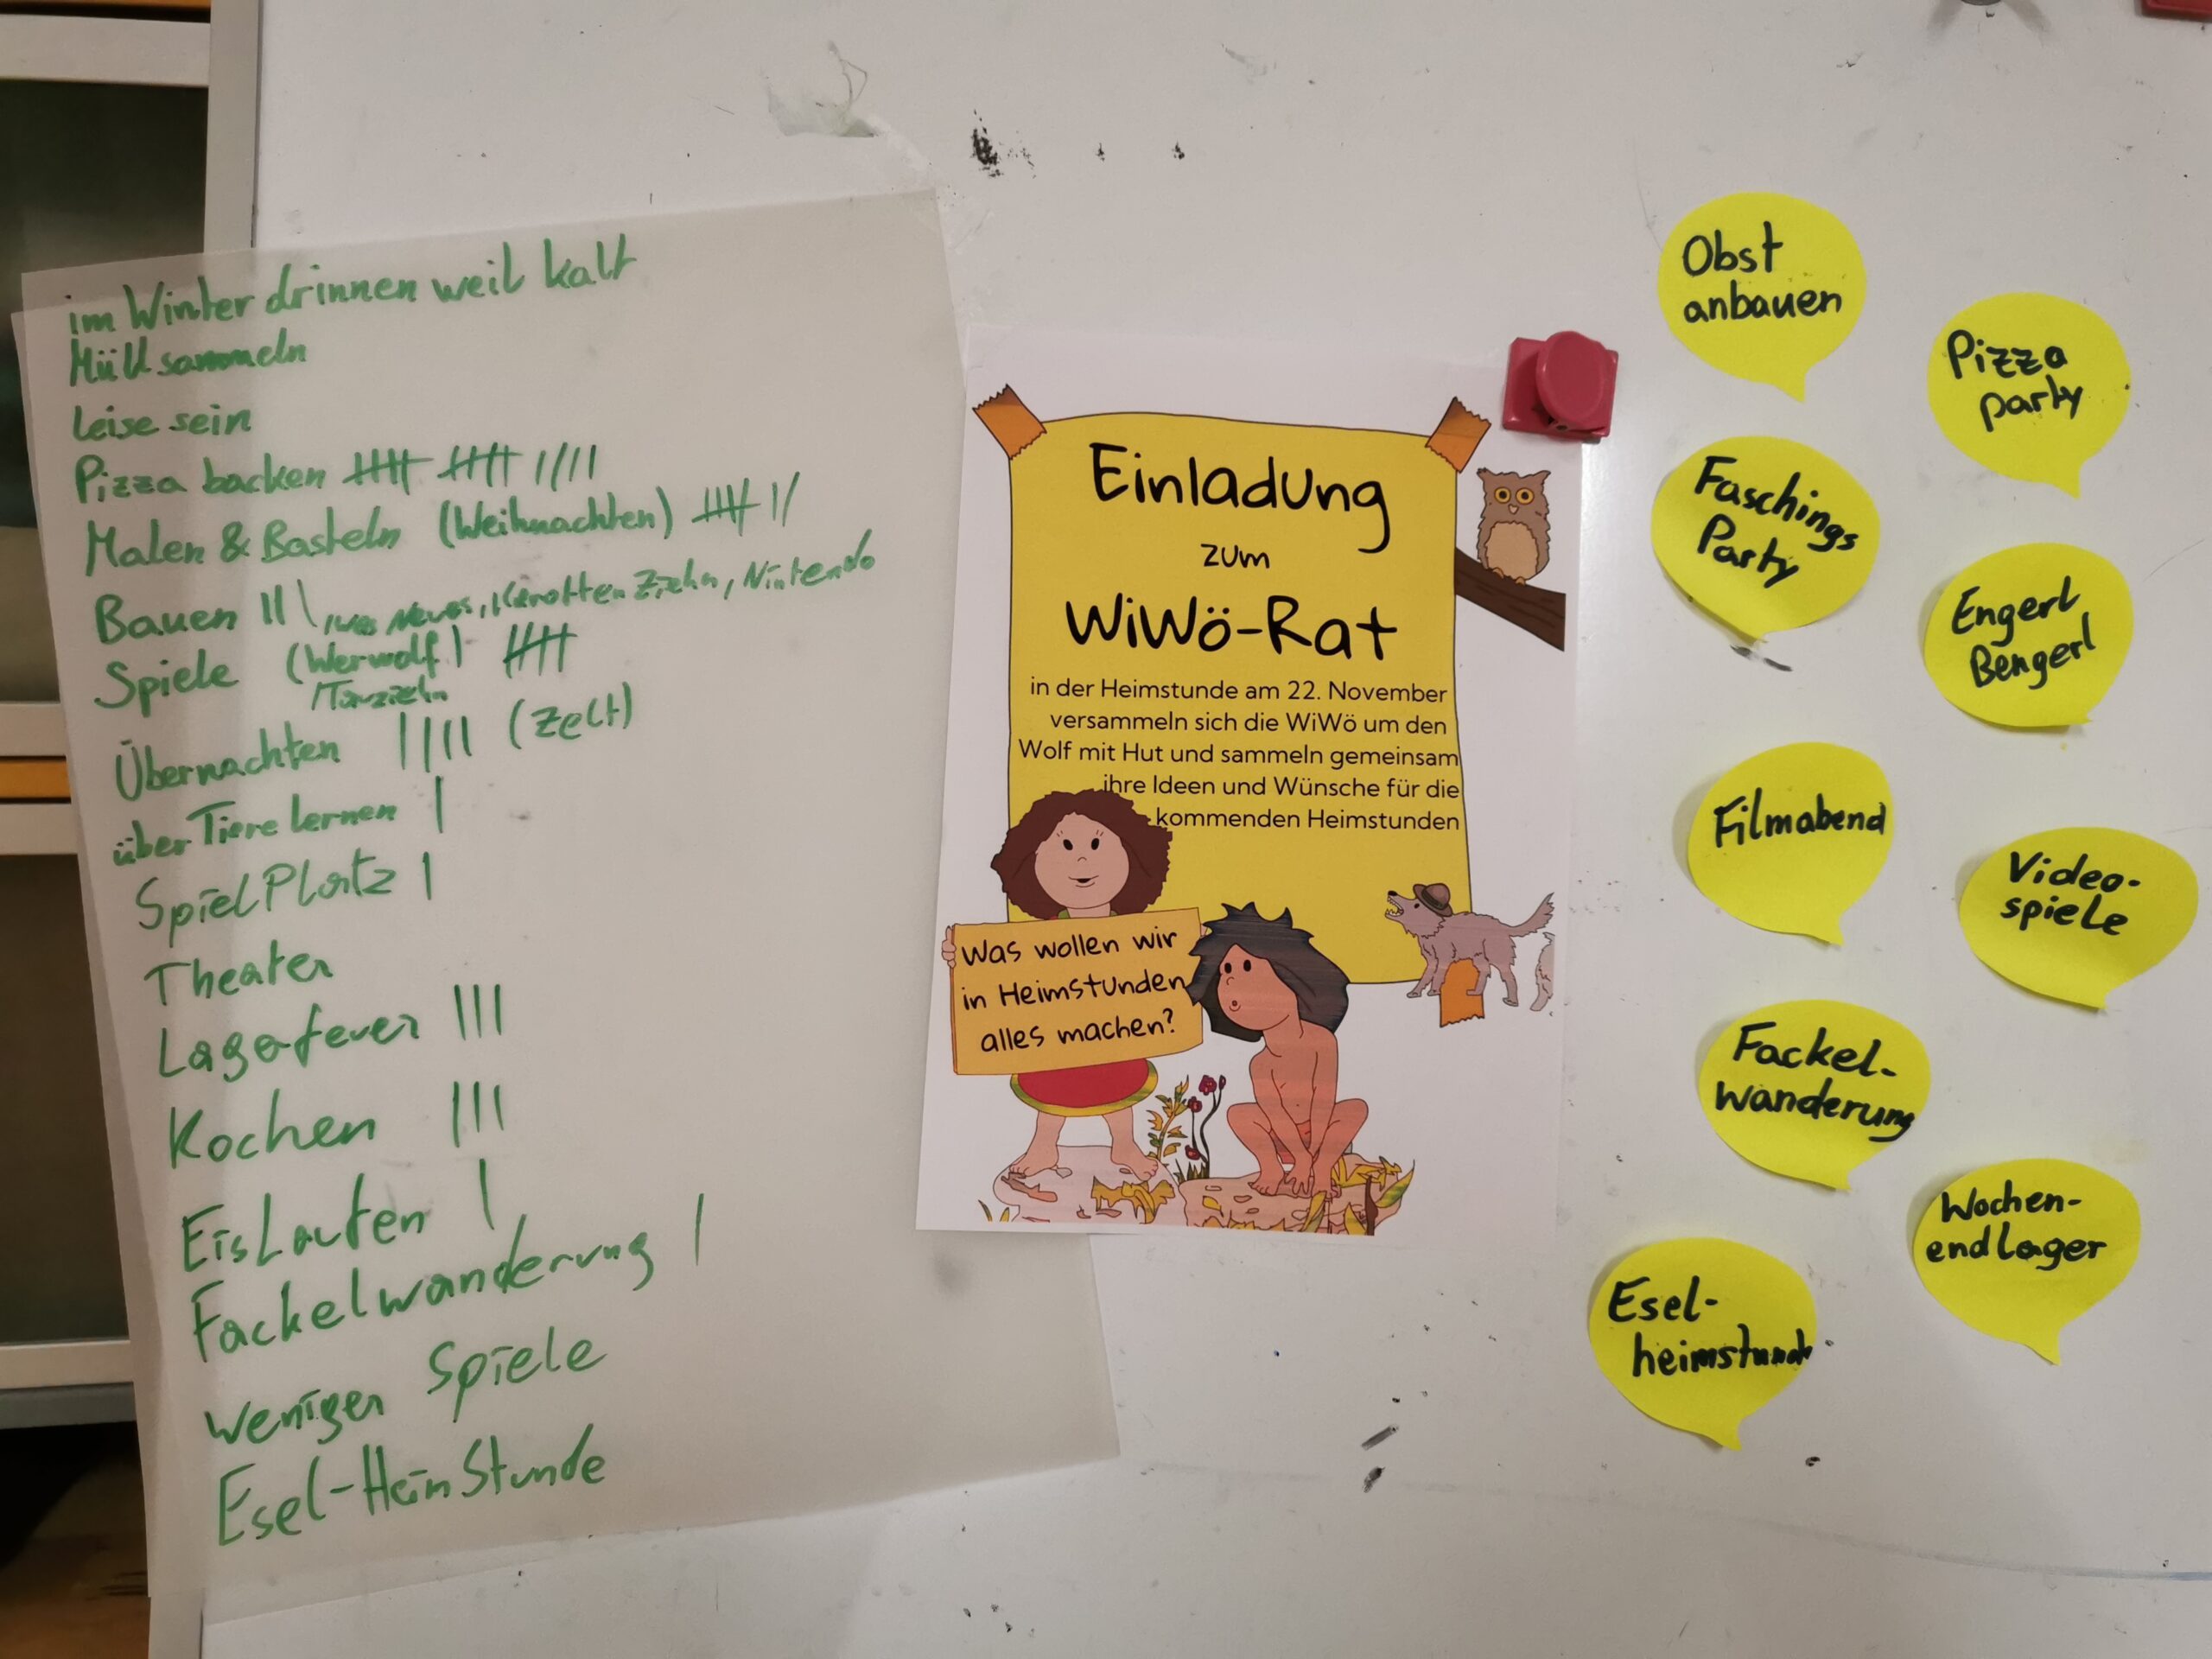 im Winter drinnen weil kalt
Müll sammeln
leise sein
Pizza backen
Malen & Basteln (Weihnachten)
Bauen
was Neues, Karotten Ziehn, Nintendo
Spiele (Werwolf)
Übernachten (Zelt)
über Tiere lernen
SpielPlatz
Theater
Lagerfeuer
Kochen
EisLaufen
Fackelwanderung
weniger Spiele
Esel-HeimStunde
Einladung
zum
WiWö-Rat
in der Heimstunde am 22. November
versammeln sich die WiWö um den
Wolf mit Hut und sammeln gemeinsam
ihre Ideen und Wünsche für die
kommenden Heimstunden
Was wollen wir
in Heimstunden
alles machen?
Obst
anbauen
Pizza
party
Faschings
Party
Engerl
Bengerl
Filmabend
Video-
spiele
Fackel-
wanderung
Wochen-
endlager
Esel-
heimstunde